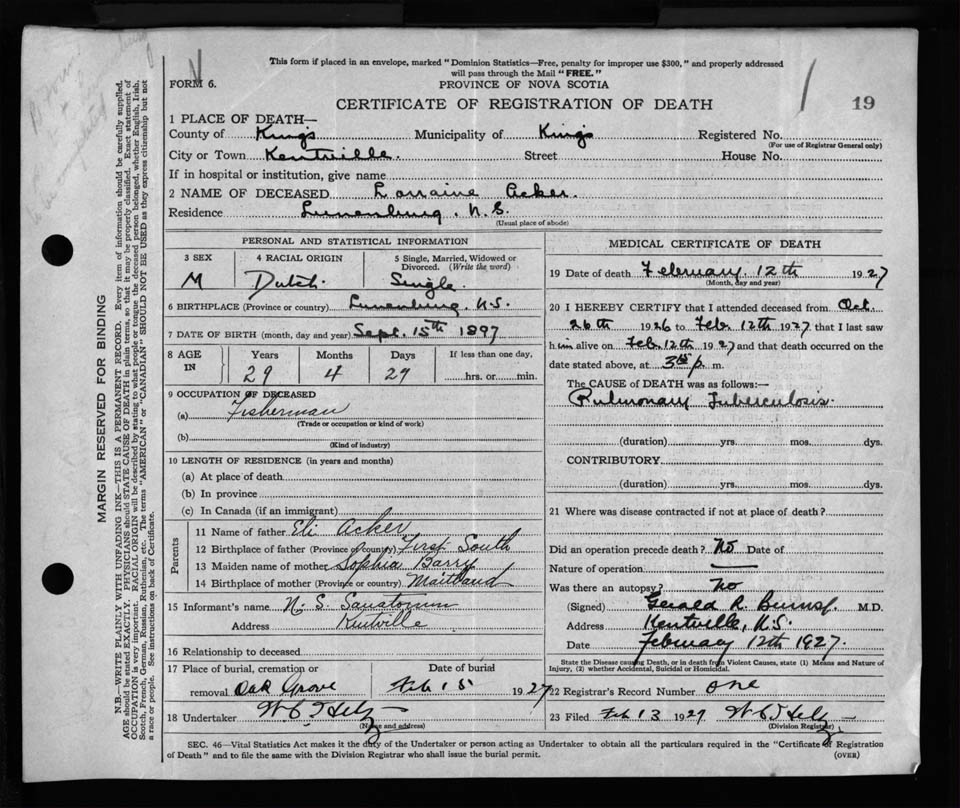 This form if placed in an envelope, marked "Dominion Statistics—Free, penalty for improper use $300," and properly addressed
will pass through the Mail "FREE."
FORM 6. PROVINCE OF NOVA SCOTIA
CERTIFICATE OF REGISTRATION OF DEATH 19
1 PLACE OF DEATH—
County of King's Municipality of King's Registered No.
(For use of Registrar General only)
City or Town Kentville. Street House No.
If in hospital or institution, give name
2 NAME OF DECEASED Lorraine Acker.
Residence Lunenburg, N.S.
(Usual place of abode)
PERSONAL AND STATISTICAL INFORMATION
3 SEX 4 RACIAL ORIGIN 5 Single, Married, Widowed or Divorced. (Write the word)
M Dutch. Single.
6 BIRTHPLACE (Province or country) Lunenburg, N.S.
7 DATE OF BIRTH (month, day and year) Sept. 15th 1897
8 AGE IN Years Months Days If less than one day,
29 4 29 hrs. or min.
9 OCCUPATION OF DECEASED
(a) Fisherman
(Trade or occupation or kind of work)
(b)
(Kind of industry)
10 LENGTH OF RESIDENCE (in years and months)
(a) At place of death
(b) In province
(c) In Canada (if an immigrant)
Parents
11 Name of father Eli Acker
12 Birthplace of father (Province or country) First South
13 Maiden name of mother Sophia Barry
14 Birthplace of mother (Province or country) Maitland
15 Informant's name N. S. Sanatorium
Address Kentville
16 Relationship to deceased
17 Place of burial, cremation or Date of burial
removal Oak Grove Feb 15 1927
18 Undertaker
(Name and address)
MEDICAL CERTIFICATE OF DEATH
19 Date of death February 12th 1927
(Month, day and year)
20 I HEREBY CERTIFY that I attended deceased from Oct.
26th 1926 to Feb. 12th 1927 that I last saw
him alive on Feb. 12th 1927 and that death occurred on the
date stated above, at p. m.
The CAUSE OF DEATH was as follows:—
Pulmonary Tuberculosis.
(duration) yrs. mos. dys.
CONTRIBUTORY
(duration) yrs. mos. dys.
21 Where was disease contracted if not at place of death?
Did an operation precede death? No Date of
Nature of operation
Was there an autopsy? No
(Signed) Gerald R. Burns M.D.
Address Kentville, N.S.
Date February 12th 1927.
State the Disease causing Death, or in death from Violent Causes, state (1) Means and Nature of
Injury, (2) whether Accidental, Suicidal or Homicidal.
22 Registrar's Record Number one
23 Filed Feb 13 1927
(Division Registrar)
SEC. 46—Vital Statistics Act makes it the duty of the Undertaker or person acting as Undertaker to obtain all the particulars required in the "Certificate of Registration
of Death" and to file the same with the Division Registrar who shall issue the burial permit. (OVER)
MARGIN RESERVED FOR BINDING
N.B.—WRITE PLAINLY WITH UNFADING INK—THIS IS A PERMANENT RECORD. Every item of information should be carefully supplied.
AGE should be stated EXACTLY. PHYSICIANS should STATE CAUSE OF DEATH in plain terms, so that it may be properly classified. Exact statement of
OCCUPATION is very important. RACIAL ORIGIN will be described by stating to what people or tongue the deceased person belonged, whether English, Irish,
Scotch, French, German, Russian, Ruthenian, etc. The terms "AMERICAN" or "CANADIAN" SHOULD NOT BE USED as they express citizenship but not
a race or people. See instructions on back of Certificate.